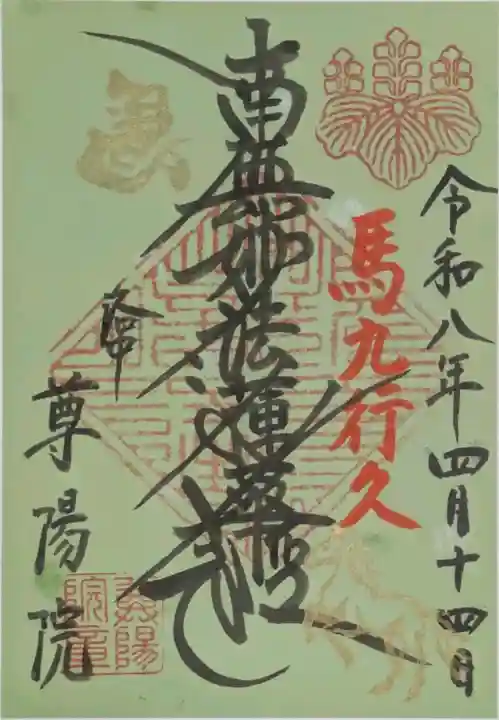 令和八年四月十四日
馬九行久
南無妙法蓮華経
尊陽院